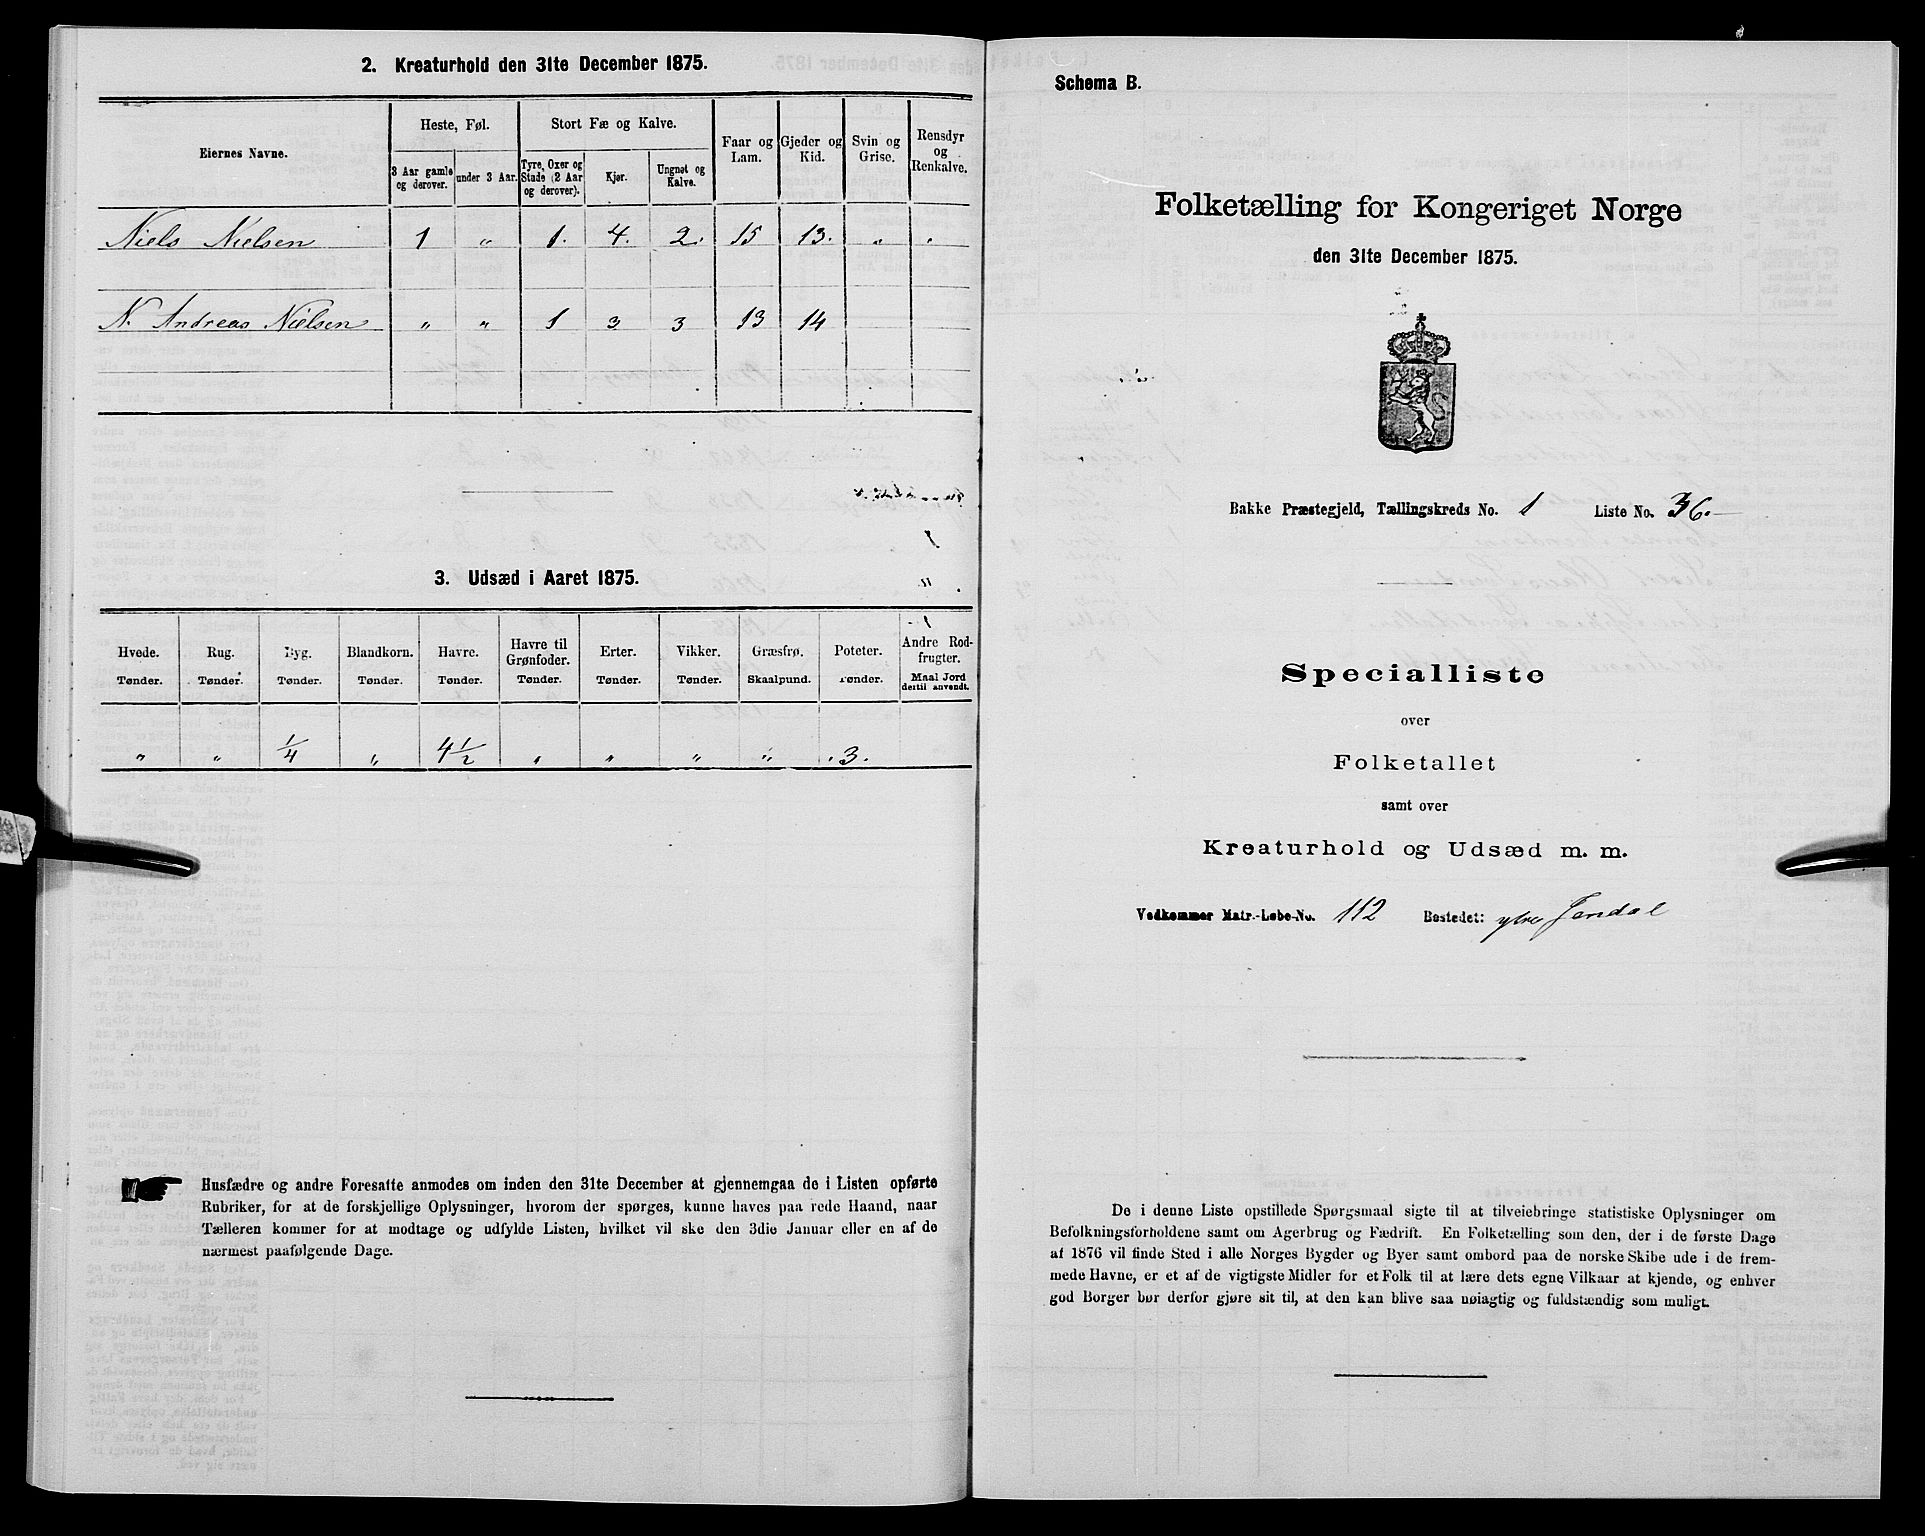 2. Kreaturhold den 31te December 1875.
Eiernes Navne.
Heste, Føl.
3 Aar gamle og derover.
under 3 Aar.
Stort Fæ og Kalve.
Tyre, Oxer og Stude (2 Aar og derover).
Kjør.
Ungnøt og Kalve.
Faar og Lam.
Gjeder og Kid.
Svin og Grise.
Rensdyr og Renkalve.
Niels Nielsen 1 " 1. 4. 2. 15 13. "
N. Andreas Nielsen " " 1 3 3 13 14
3. Udsæd i Aaret 1875.
Hvede. Tønder.
Rug. Tønder.
Byg. Tønder.
Blandkorn. Tønder.
Havre. Tønder.
Havre til Grønfoder. Tønder.
Erter. Tønder.
Vikker. Tønder.
Græsfrø. Skaalpund.
Poteter. Tønder.
Andre Rodfrugter. Maal Jord dertil anvendt.
" " 1/4 " 4 1/2 " " " " 3.
Husfædre og andre Foresatte anmodes om inden den 31te December at gjennemgaa de i Listen opførte
Rubriker, for at de forskjellige Oplysninger, hvorom der spørges, kunne haves paa rede Haand, naar
Tælleren kommer for at modtage og udfylde Listen, hvilket vil ske den 3die Januar eller en af de
nærmest paafølgende Dage.
Schema B.
Folketælling for Kongeriget Norge
den 31te December 1875.
Bakke Præstegjeld, Tællingskreds No. 1 Liste No. 36.
Specialliste
over
Folketallet
samt over
Kreaturhold og Udsæd m. m.
Vedkommer Matr.-Løbe-No. 112 Bostedet: ytre Jendal
De i denne Liste opstillede Spørgsmaal sigte til at tilveiebringe statistiske Oplysninger om
Befolkningsforholdene samt om Agerbrug og Fædrift. En Folketælling som den, der i de første Dage
af 1876 vil finde Sted i alle Norges Bygder og Byer samt ombord paa de norske Skibe ude i de frem-
mede Havne, er et af de vigtigste Midler for et Folk til at lære dets egne Vilkaar at kjende, og enhver
god Borger bør derfor gjøre sit til, at den kan blive saa nøiagtig og fuldstændig som muligt.